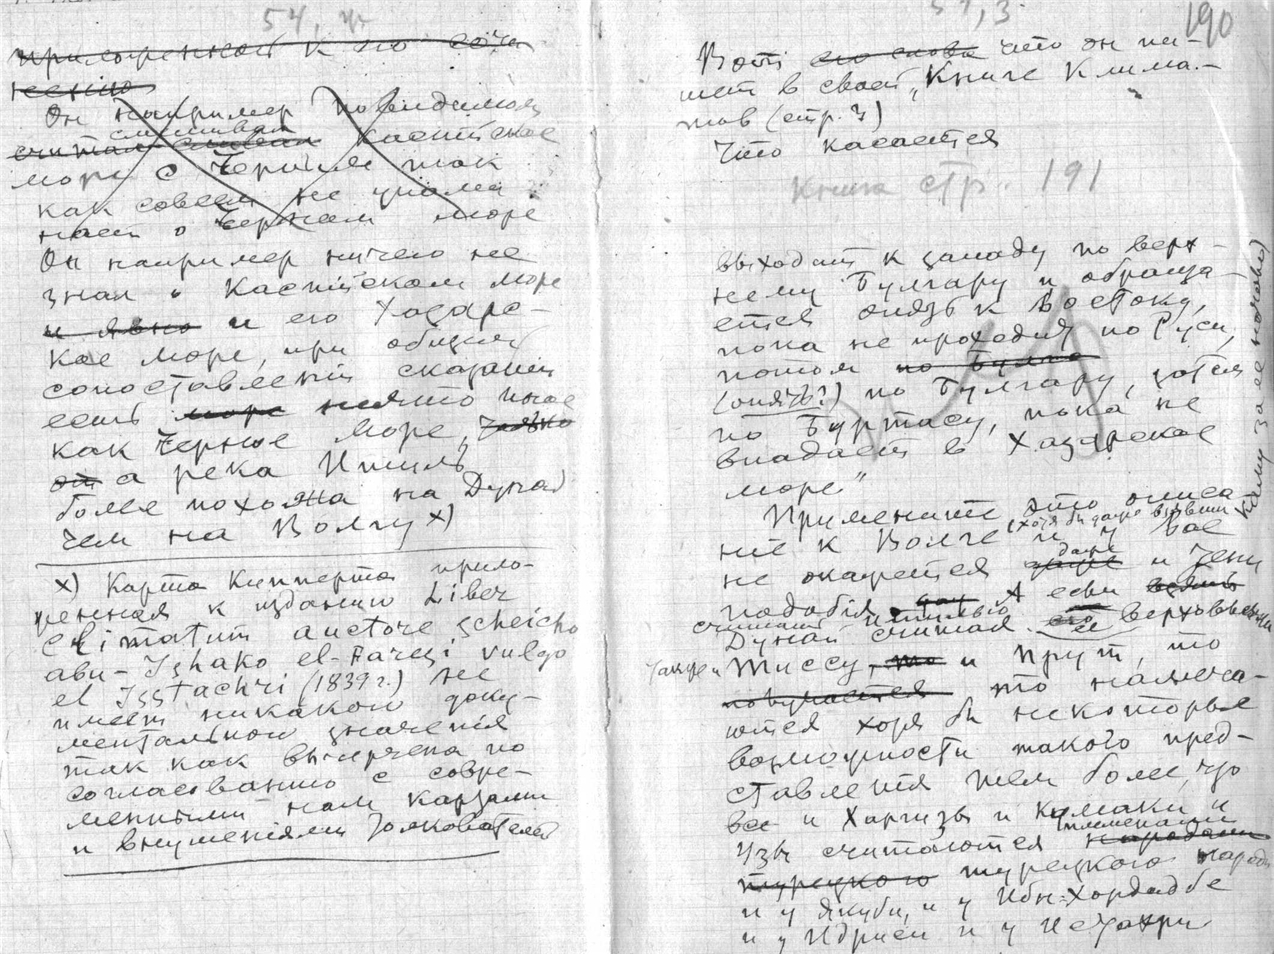 54, 
приложенной к его сочи
нению
Он например повидимому
смешивал
считал Каспийское
море с Черным так
как совсем не упоми
нает о Черном море
Он например ничего не
знал о Каспийском море
и явно и его Хазарс-
кое море, при общем
сопоставлении сказаний
есть море не что иное
как Черное море,
от а река Итиль
более похожа на Дунай
чем на Волгу х)
х) Карта Кипперта прило-
женная к изданию Liber
Climatum auctore scheicho
abu-Ishako el-Faresi vulgo
el Isstachri (1839 г.) не
имеет никакого доку-
ментального значения
так как вычерчена по
согласованию с совре-
менными нам картами
и внушениям толкователей
57, 3
190
Вот его слова что он пи-
шет в своей „Книге Клима-
тов (стр. ?)
Что касается
Книга стр. 191
выходит к западу по верх-
нему Булгару и обраща-
ется опять к востоку,
пока не проходит по Руси,
потом по Булга
(опять?) по Булгару, потом
по Буртасу, пока не
впадает в Хазарское
море"
Примените это описа
ние к Волге и у вас
(хотя бы даже взявши
Каму за ее начало)
не окажется даже и тени
даже
подобия. А если
считать
Дунай считая его верховьями
ее
также и Тиссу, то и Прут, то
получается то намеча-
ются хотя бы некоторые
возможности такого пред-
ставления тем более, что
все и Харгизы и Кимаки и
племенами
Узы считаются народами
турецкого турецкого народа
и у Якуби, и у Ибн-Хордадбе
и у Идриси и у Истахри